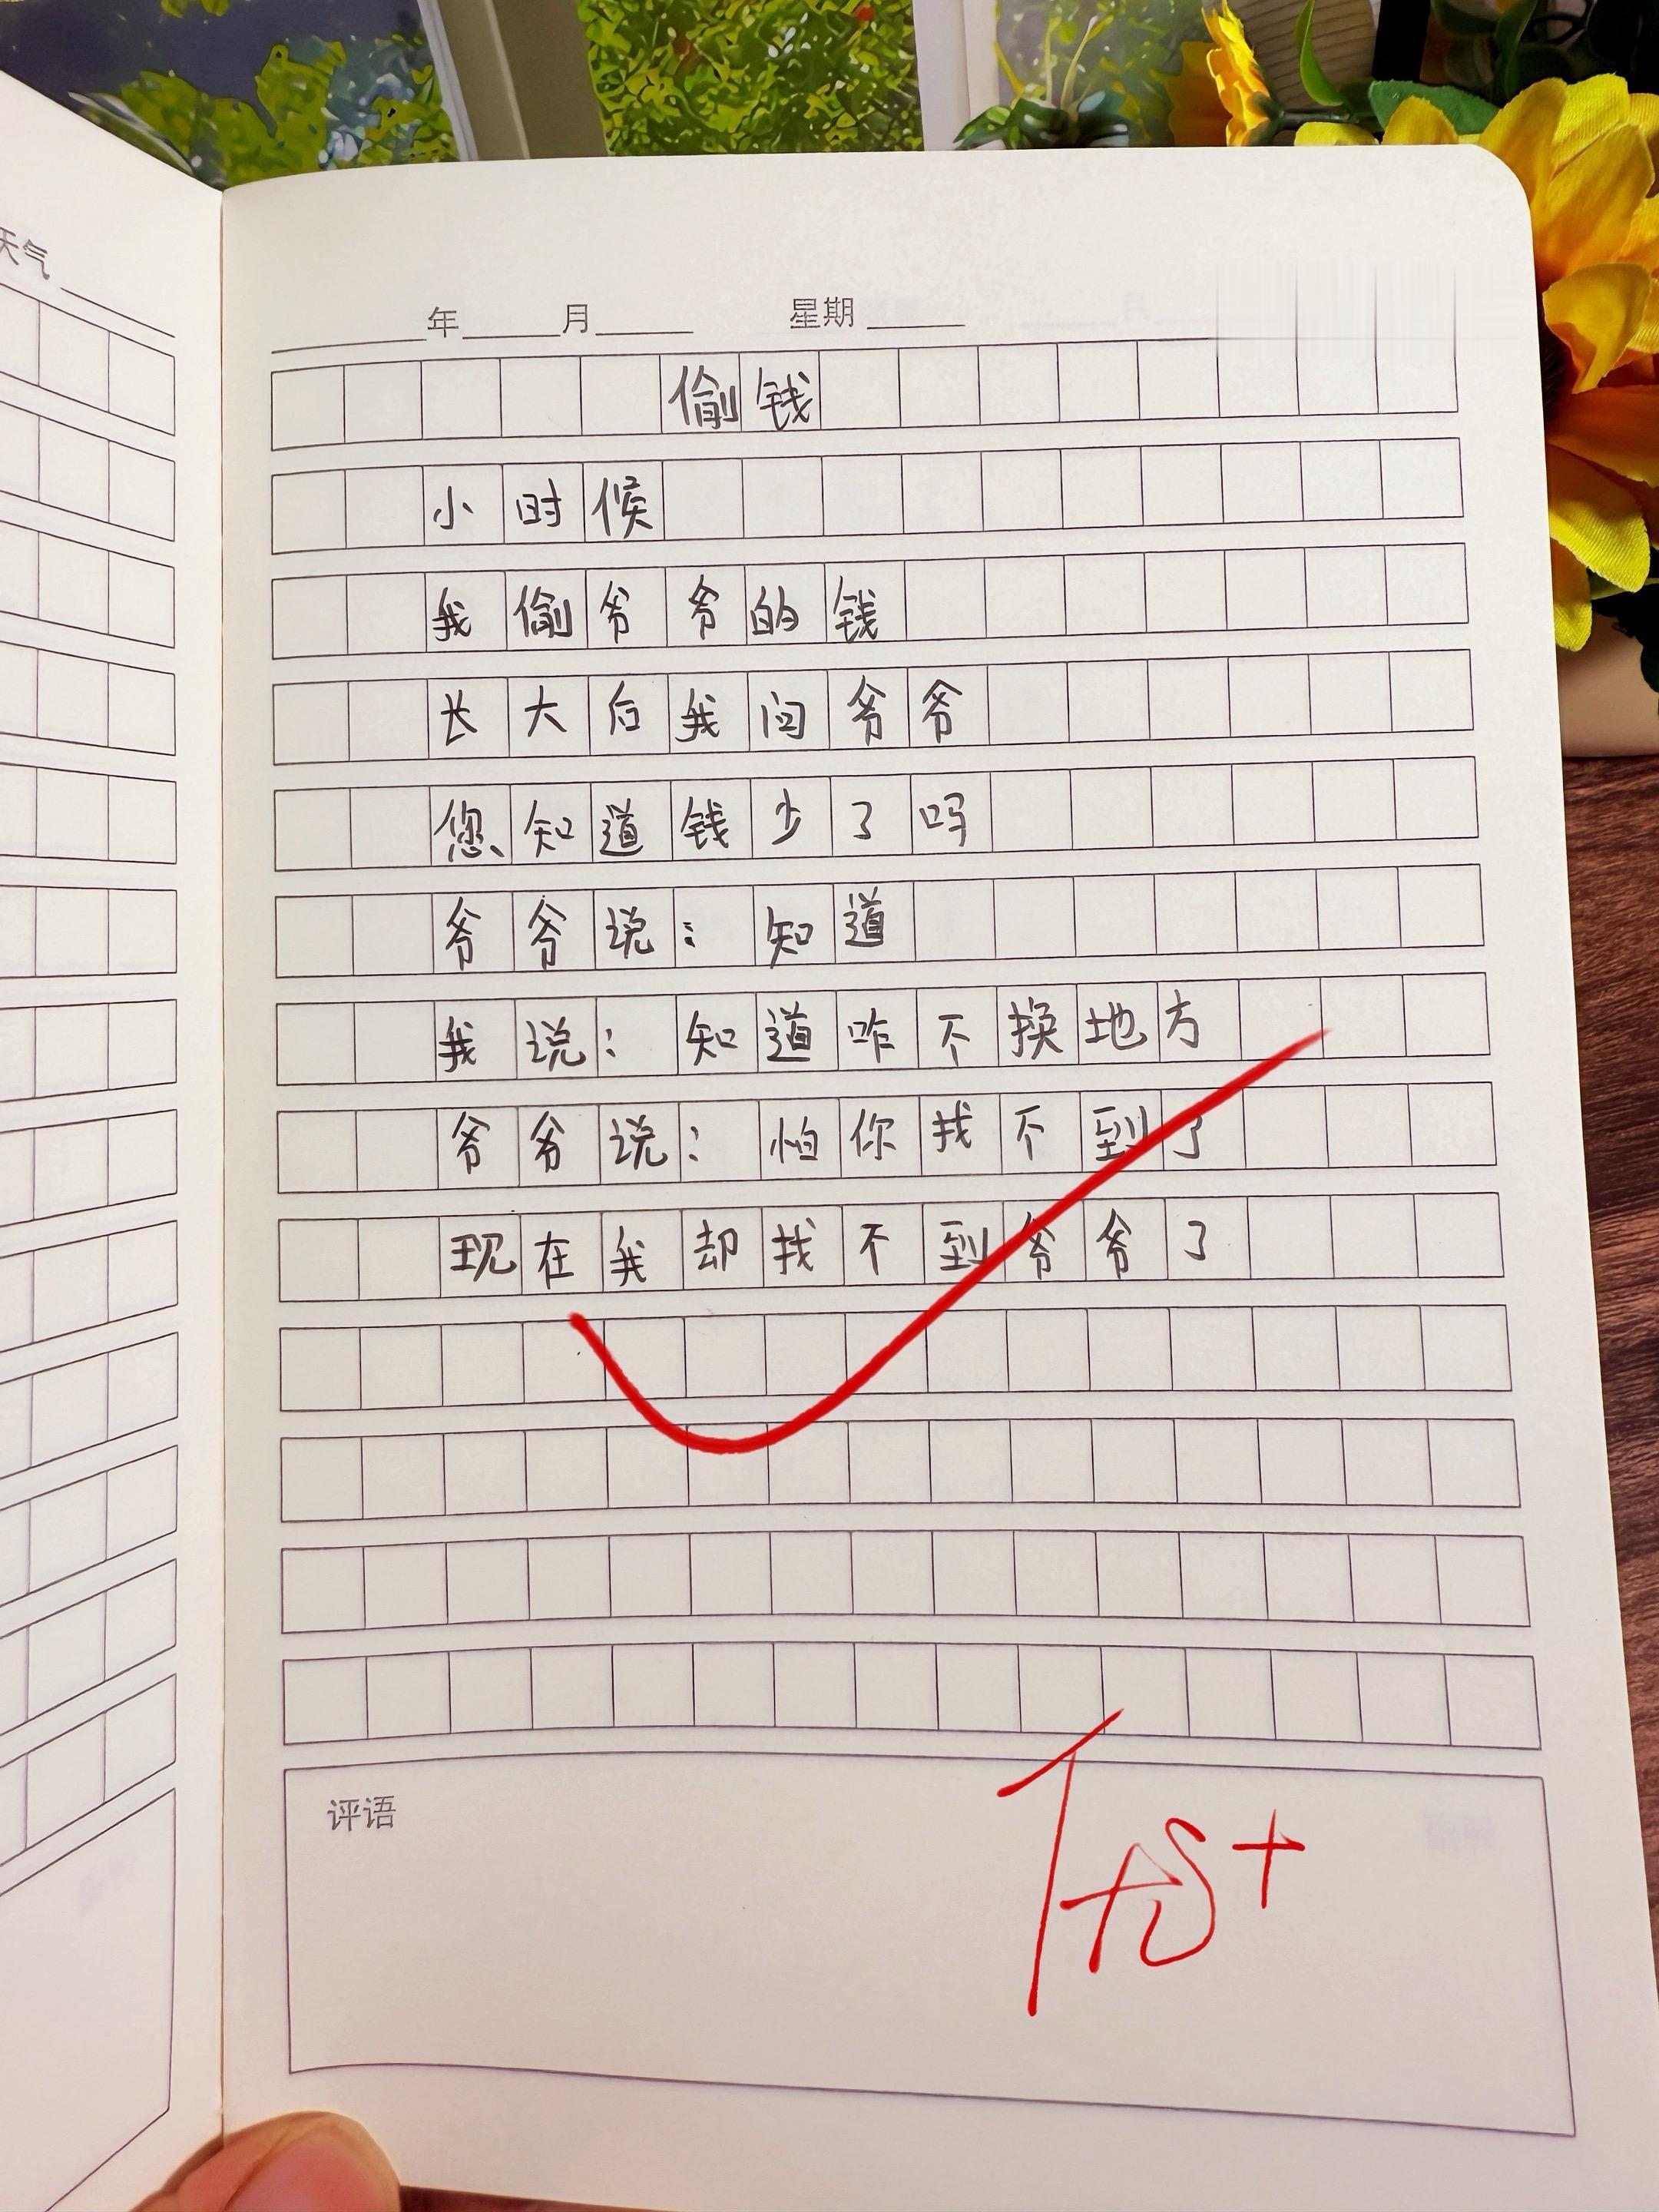 天气
年 月 星期
偷钱
小时候
我偷爷爷的钱
长大后我问爷爷
您知道钱少了吗
爷爷说：知道
我说：知道咋不换地方
爷爷说：怕你找不到了
现在我却找不到爷爷了
评语